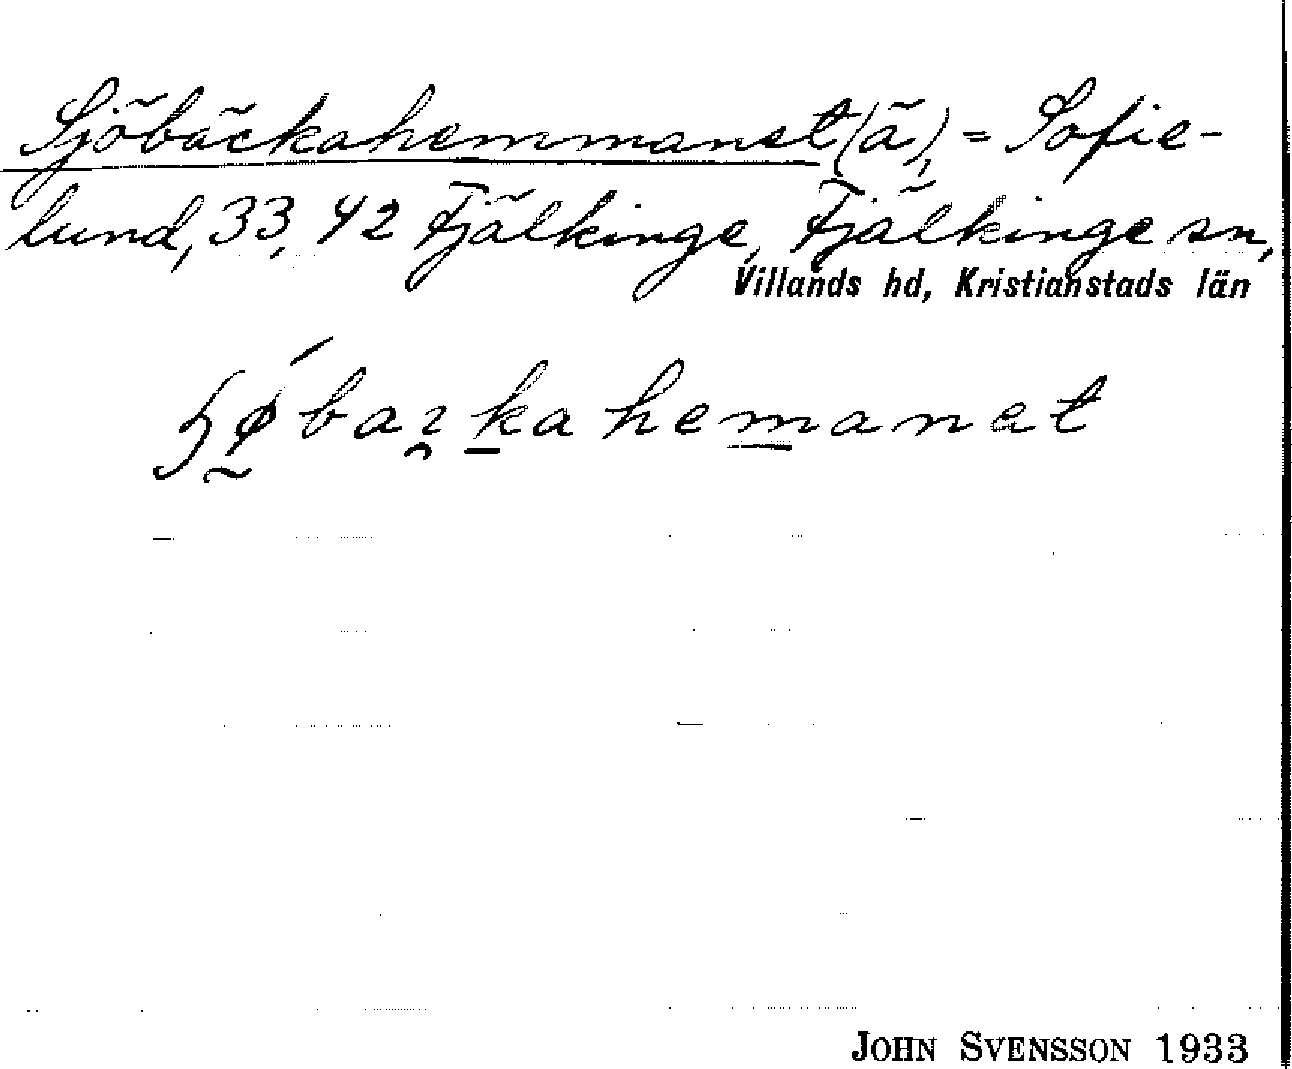 Sjöbäckahemmanet (ä), = Sofie-
lund, 33, 42 Fjälkinge, Fjälkinge sn,
Villands hd, Kristianstads län
ɧǿ̰baı̯ḵahem̱anet
JOHN SVENSSON 1933